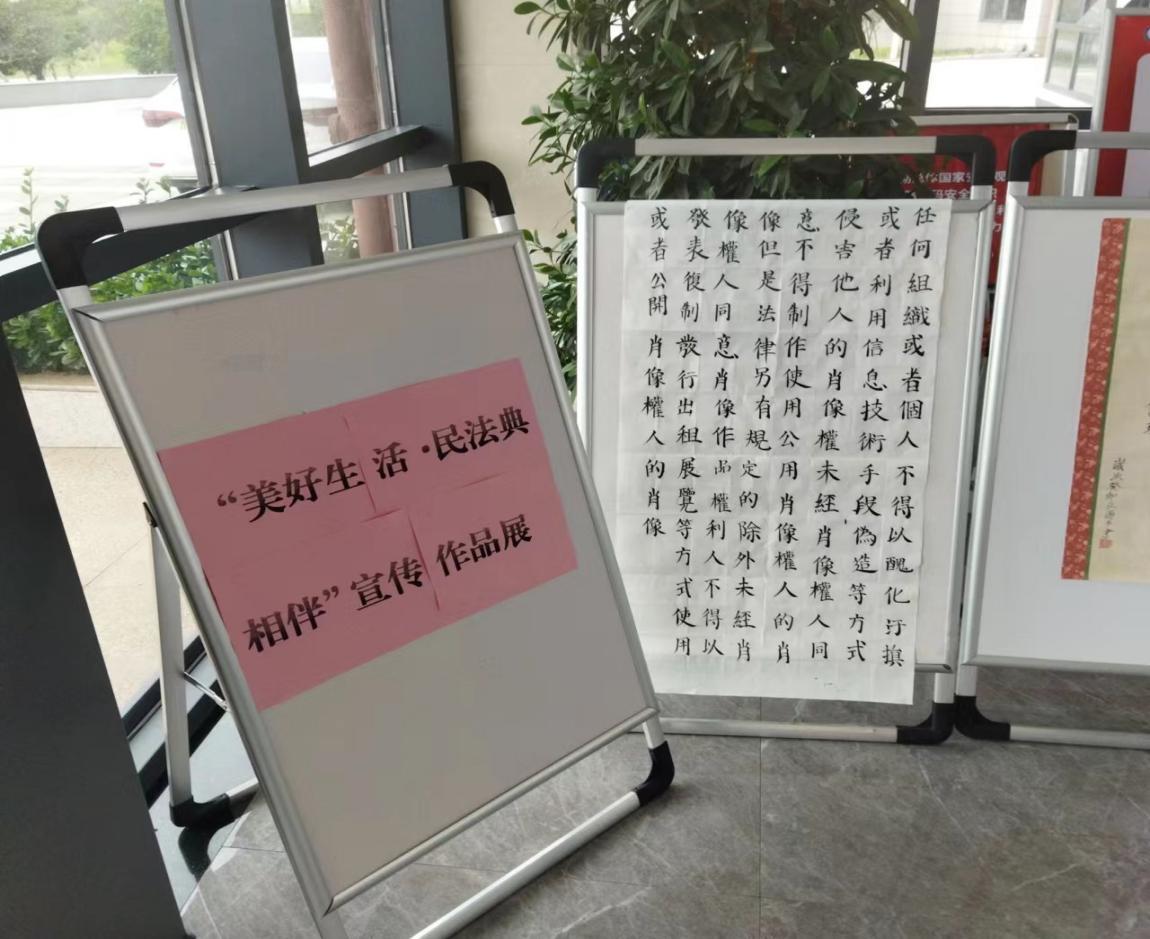 “美好生活·民法典
相伴”宣传作品展
任何組織或者個人不得以醜化汙損
或者利用信息技術手段偽造等方式
侵害他人的肖像權未經肖像權人同
意不得制作使用公用肖像權人的肖
像但是法律另有規定的除外未經肖
像權人同意肖像作品權利人不得以
發表復制發行出租展覽等方式使用
或者公開肖像權人的肖像
国家
安全